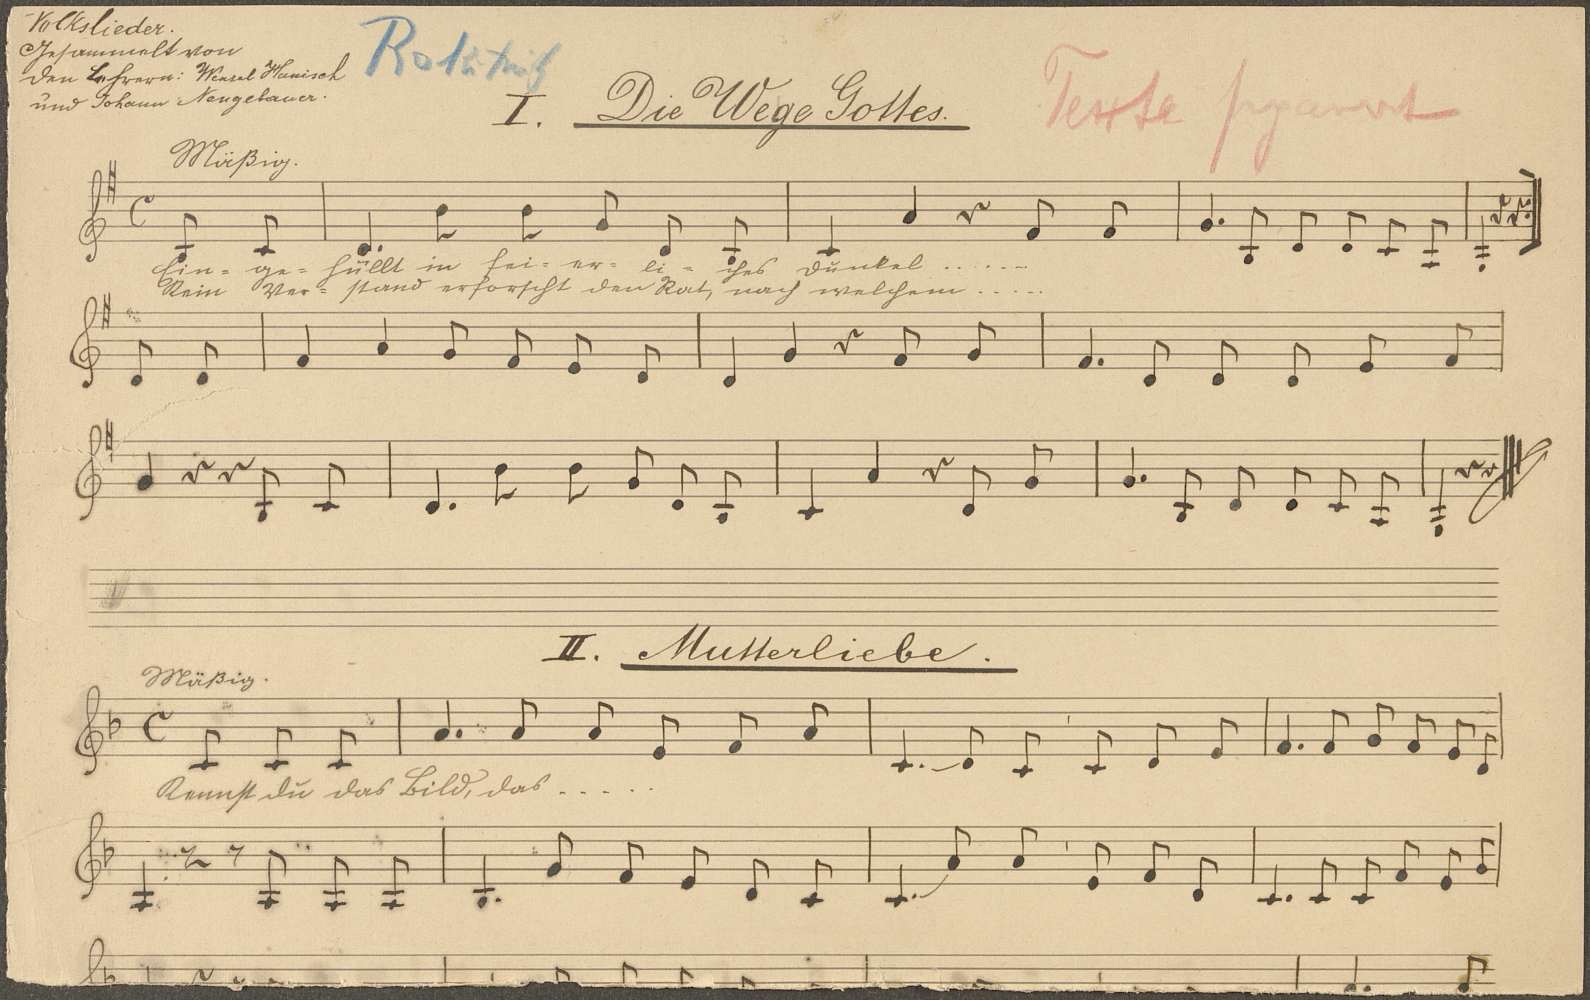 Volkslieder.
Gesammelt von
den Lehrern: Wenzel Hanisch
und Johann Neugebauer.
I. Die Wege Gottes.
Texte
Mäßig.
Ein- ge- hüllt in fei- er- li- ches Dunkel ......
Kein Ver- stand erforscht den Rat, nach welchem .....
II. Mutterliebe.
Mäßig.
Kennst du das Bild, das .....